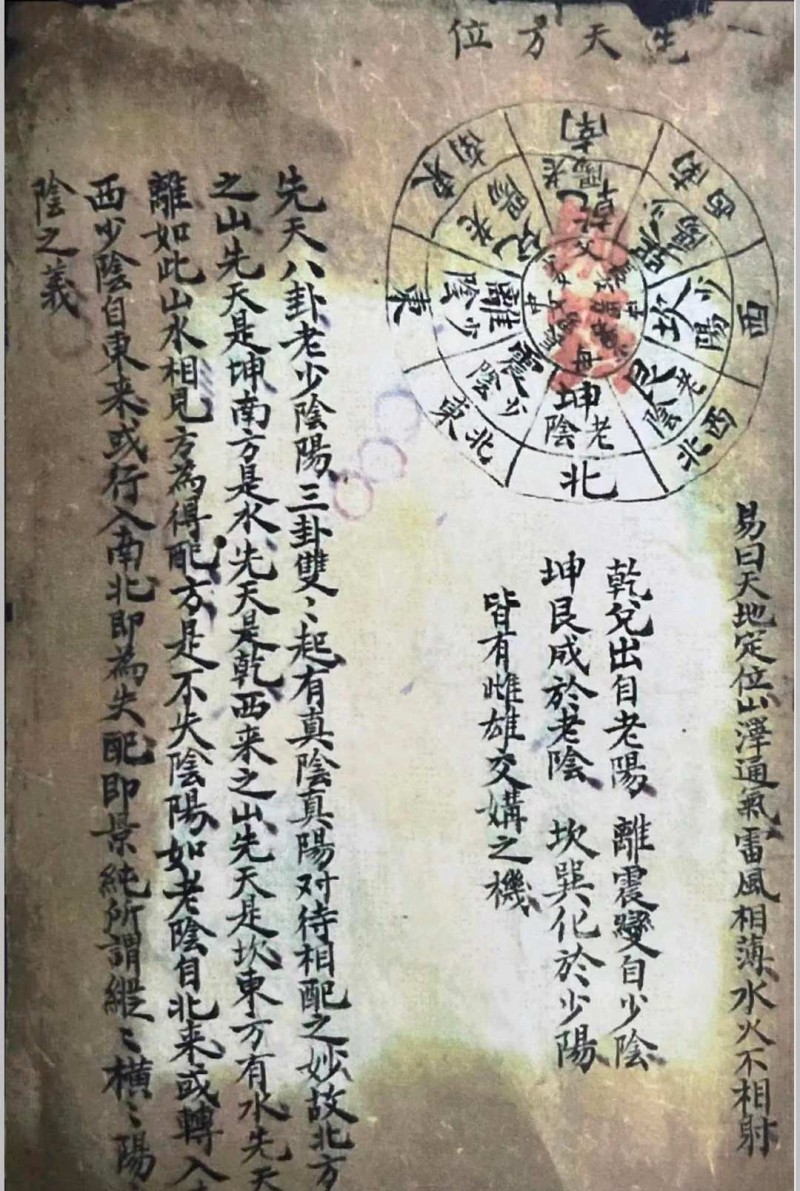 先天方位
南
老陽
乾
西南
少陽
巽
西
少陽
坎
西北
老陰
艮
北
老陰
坤
東北
少陰
震
東
少陰
離
東南
老陽
兌
父
母
中
中
易曰天地定位山澤通氣雷風相薄水火不相射
乾兌出自老陽 離震變自少陰
坤艮成於老陰 坎巽化於少陽
皆有雌雄交媾之機
先天八卦老少陰陽三卦雙〻起有真陰真陽对待相配之妙故北方
之山先天是坤南方是水先天是乾西来之山先天是坎東方有水先天
離如此山水相見方為得配方是不失陰陽如老陰自北来或轉入
西少陰自東来或行入南北即為失配即景純所謂縱〻橫〻陽
陰之義